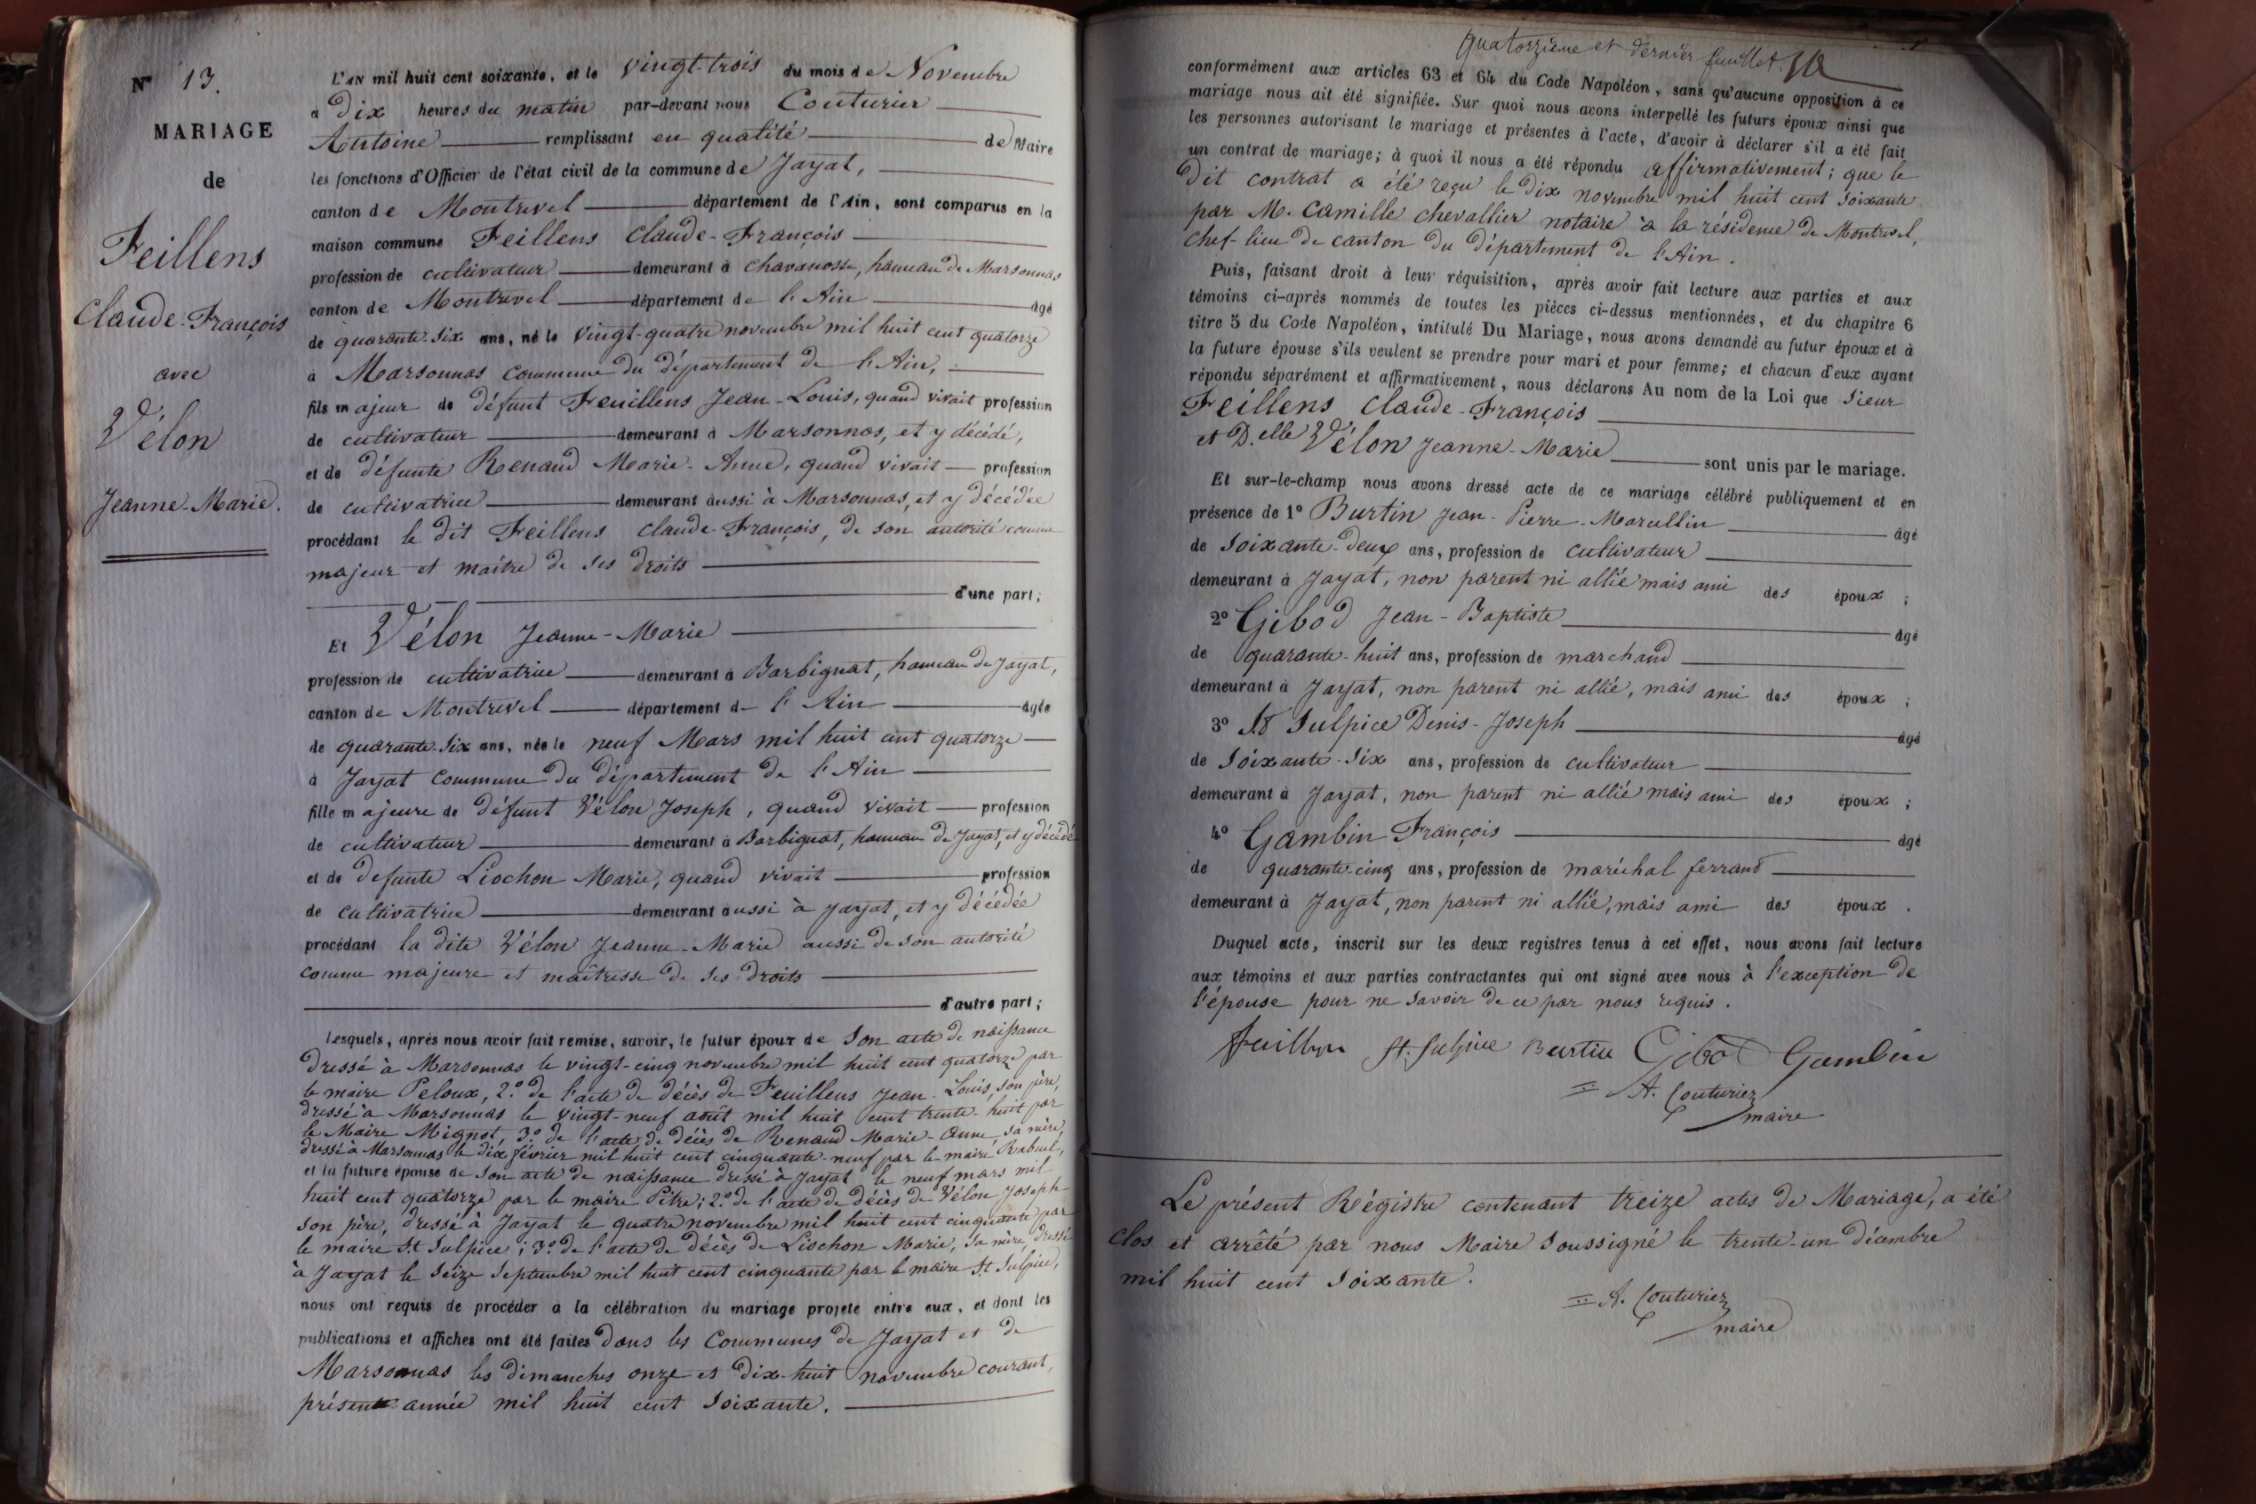 N° 13.
MARIAGE
de
Feillens
Claude-François
avec
Vélon
Jeanne-Marie.
L'AN mil huit cent soixante, et le vingt-trois du mois de Novembre
a dix heures du matin par-devant nous Couturier
Antoine remplissant en qualité de Maire
les fonctions d'Officier de l'état civil de la commune de Jayat,
canton de Montrevel département de l'Ain, sont comparus en la
maison commune Feillens Claude-François
profession de cultivateur demeurant à Chavanosse, hameau de Marsonnas
canton de Montrevel département de l'Ain âgé
de quarante-six ans, né le vingt-quatre novembre mil huit cent quatorze
à Marsonnas commune du département de l'Ain,
fils majeur de défunt Feuillens Jean-Louis, quand vivait profession
de cultivateur demeurant à Marsonnas, et y décédé,
et de défunte Renaud Marie-Anne, quand vivait profession
de cultivatrice demeurant aussi à Marsonnas, et y décédée
procédant le dit Feillens Claude-François, de son autorité comme
majeur et maître de ses droits
d'une part;
Et Vélon Jeanne-Marie
profession de cultivatrice demeurant à Barbignat, hameau de Jayat,
canton de Montrevel département de l'Ain âgée
de quarante-six ans, née le neuf Mars mil huit cent quatorze
à Jayat commune du département de l'Ain
fille majeure de défunt Vélon Joseph, quand vivait profession
de cultivateur demeurant à Barbignat, hameau de Jayat, et y décédé
et de defunte Liochon Marie, quand vivait profession
de cultivatrice demeurant aussi à Jayat, et y décédée
procédant la dite Vélon Jeanne-Marie aussi de son autorité
comme majeure et maîtresse de ses droits
d'autre part;
Lesquels, après nous avoir fait remise, savoir, le futur époux de son acte de naissance
dressé à Marsonnas le vingt-cinq novembre mil huit cent quatorze par
le maire Peloux, 2.° de l'acte de décès de Feuillens Jean-Louis, son père,
dressé à Marsonnas le vingt-neuf août mil huit cent trente-huit par
le Maire Mignot, 3.° de l'acte de décès de Renaud Marie-Anne sa mère,
dressé à Marsonnas le dix février mil huit cent cinquante-neuf par le maire Rabuel,
et la future épouse de son acte de naissance dressé à Jayat le neuf mars mil
huit cent quatorze par le maire Pitre; 2.° de l'acte de décès de Vélon Joseph
son père, dressé à Jayat le quatre novembre mil huit cent cinquante par
le maire St Sulpice; 3.° de l'acte de décès de Liochon Marie, sa mère dressé
à Jayat le seize septembre mil huit cent cinquante par le maire St Sulpice,
nous ont requis de procéder à la célébration du mariage projeté entre eux, et dont les
publications et affiches ont été faites dans les Communes de Jayat et de
Marsonnas les dimanches onze et dix-huit novembre courant,
présente année mil huit cent soixante.
quatorzième et dernier feuillet.
conformément aux articles 63 et 64 du Code Napoléon, sans qu'aucune opposition à ce
mariage nous ait été signifiée. Sur quoi nous avons interpellé les futurs époux ainsi que
les personnes autorisant le mariage et présentes à l'acte, d'avoir à déclarer s'il a été fait
un contrat de mariage; à quoi il nous a été répondu affirmativement; que le
dit contrat a été reçu le dix novembre mil huit cent soixante
par M. Camille Chevallier notaire à la résidence de Montrevel,
chef-lieu de canton du département de l'Ain.
Puis, faisant droit à leur réquisition, après avoir fait lecture aux parties et aux
témoins ci-après nommés de toutes les pièces ci-dessus mentionnées, et du chapitre 6
titre 5 du Code Napoléon, intitulé Du Mariage, nous avons demandé au futur époux et à
la future épouse s'ils veulent se prendre pour mari et pour femme; et chacun d'eux ayant
répondu séparément et affirmativement, nous déclarons Au nom de la Loi que Sieur
Feillens Claude-François
et D.elle Vélon Jeanne-Marie sont unis par le mariage.
Et sur-le-champ nous avons dressé acte de ce mariage célébré publiquement et en
présence de 1° Burtin Jean-Pierre-Marcellin âgé
de soixante-deux ans, profession de cultivateur
demeurant à Jayat, non parent ni allié mais ami des époux;
2° Gibod Jean-Baptiste âgé
de quarante-huit ans, profession de marchand
demeurant à Jayat, non parent ni allié, mais ami des époux;
3° St Sulpice Denis-Joseph âgé
de soixante-six ans, profession de cultivateur
demeurant à Jayat, non parent ni allié mais ami des époux;
4° Gambin François âgé
de quarante-cinq ans, profession de maréchal ferrand
demeurant à Jayat, non parent ni allié, mais ami des époux.
Duquel acte, inscrit sur les deux registres tenus à cet effet, nous avons fait lecture
aux témoins et aux parties contractantes qui ont signé avec nous à l'exception de
l'épouse pour ne savoir de ce par nous requis.
St. Sulpice Burtin Gibod Gambin
A. Couturier
maire
Le présent Régistre contenant treize actes de Mariage, a été
clos et arrêté par nous Maire soussigné le trente-un décembre
mil huit cent soixante.
A. Couturier
maire